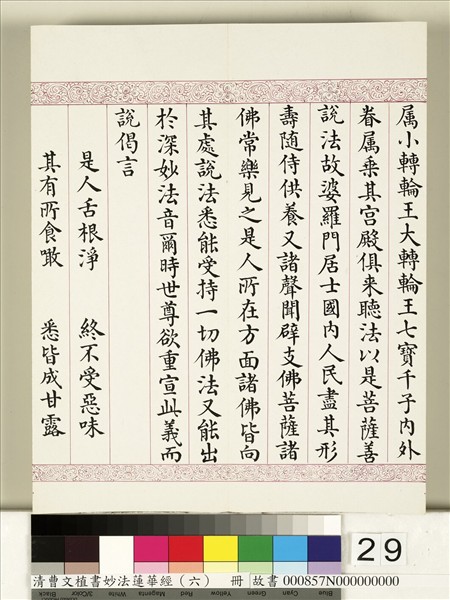 属小轉輪王大轉輪王七寶千子內外
眷属乗其宮殿俱来聽法以是菩薩善
說法故婆羅門居士國內人民盡其形
壽隨侍供養又諸聲聞辟支佛菩薩諸
佛常樂見之是人所在方面諸佛皆向
其處說法悉能受持一切佛法又能出
於深妙法音爾時世尊欲重宣此義而
說偈言
是人舌根淨 終不受惡味
其有所食噉 悉皆成甘露
29
清曹文植書妙法蓮華經（六） 冊 故書 000857N000000000
Black 3/Color White Magenta Red Yellow Green Cyan Blue